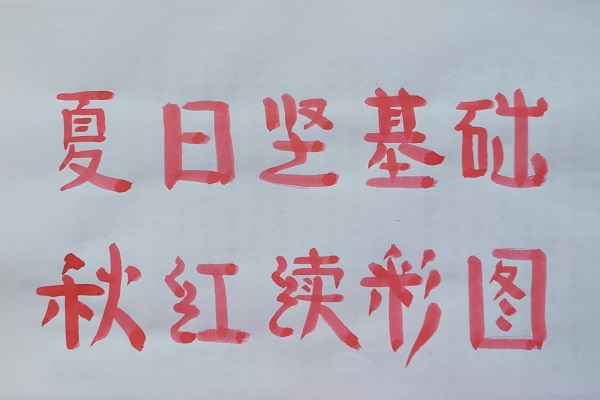 夏日坚基础
秋红续彩图